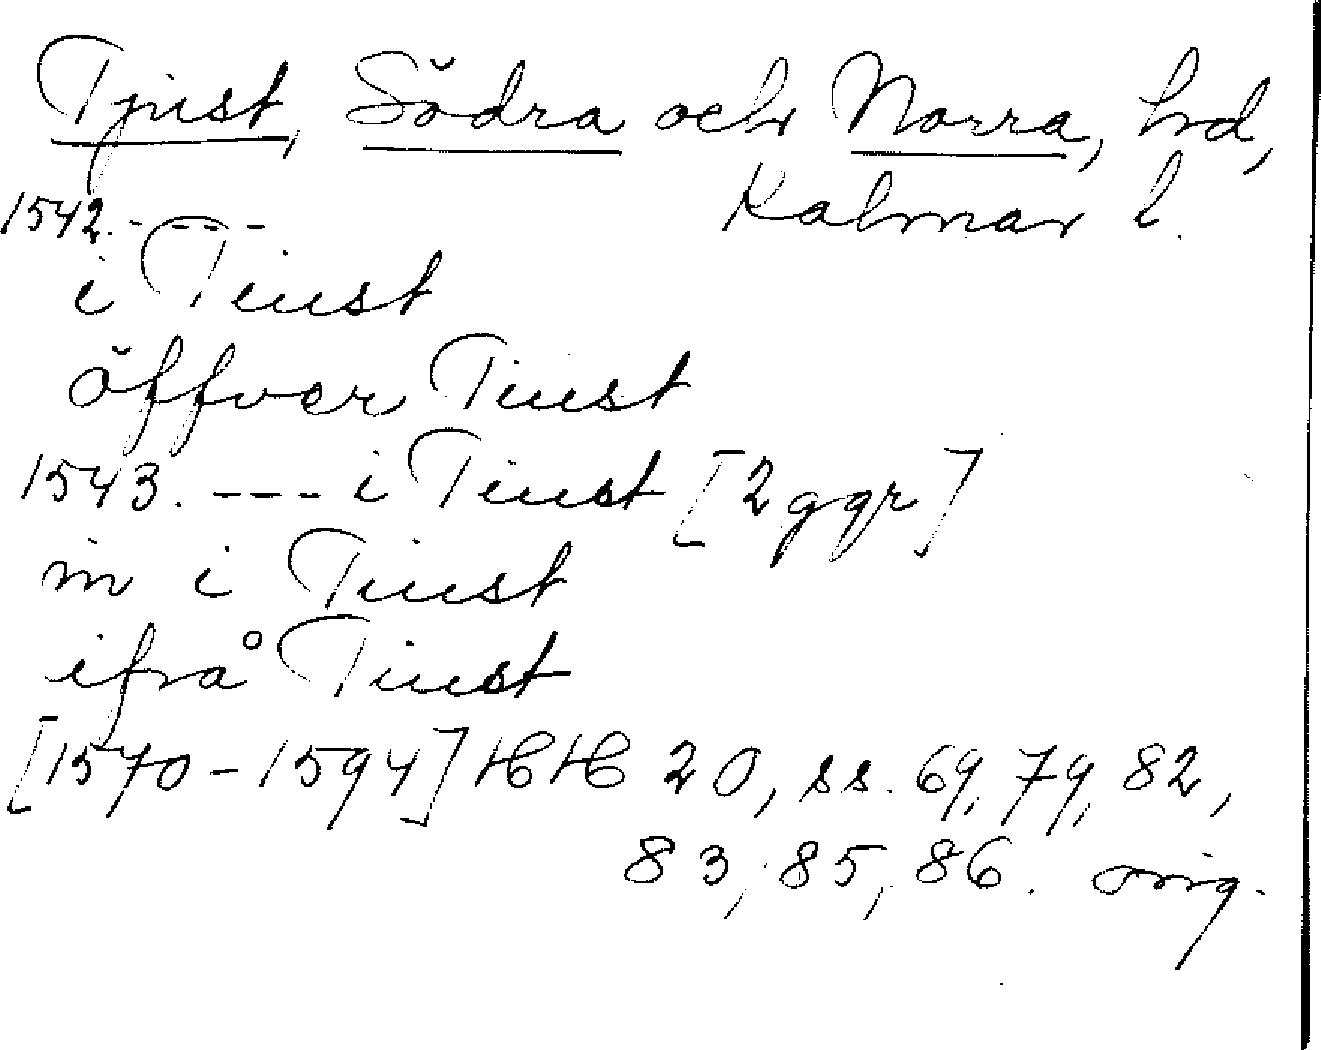 Tjust, Södra och Norra, hd,
Kalmar l.
1542. - - - -
i Tiust
öffver Tiust
1543. - - - i Tiust [2 ggr]
in i Tiust
ifrå Tiust
[1570-1594] HH 20, ss. 69, 79, 82,
83, 85, 86. orig.